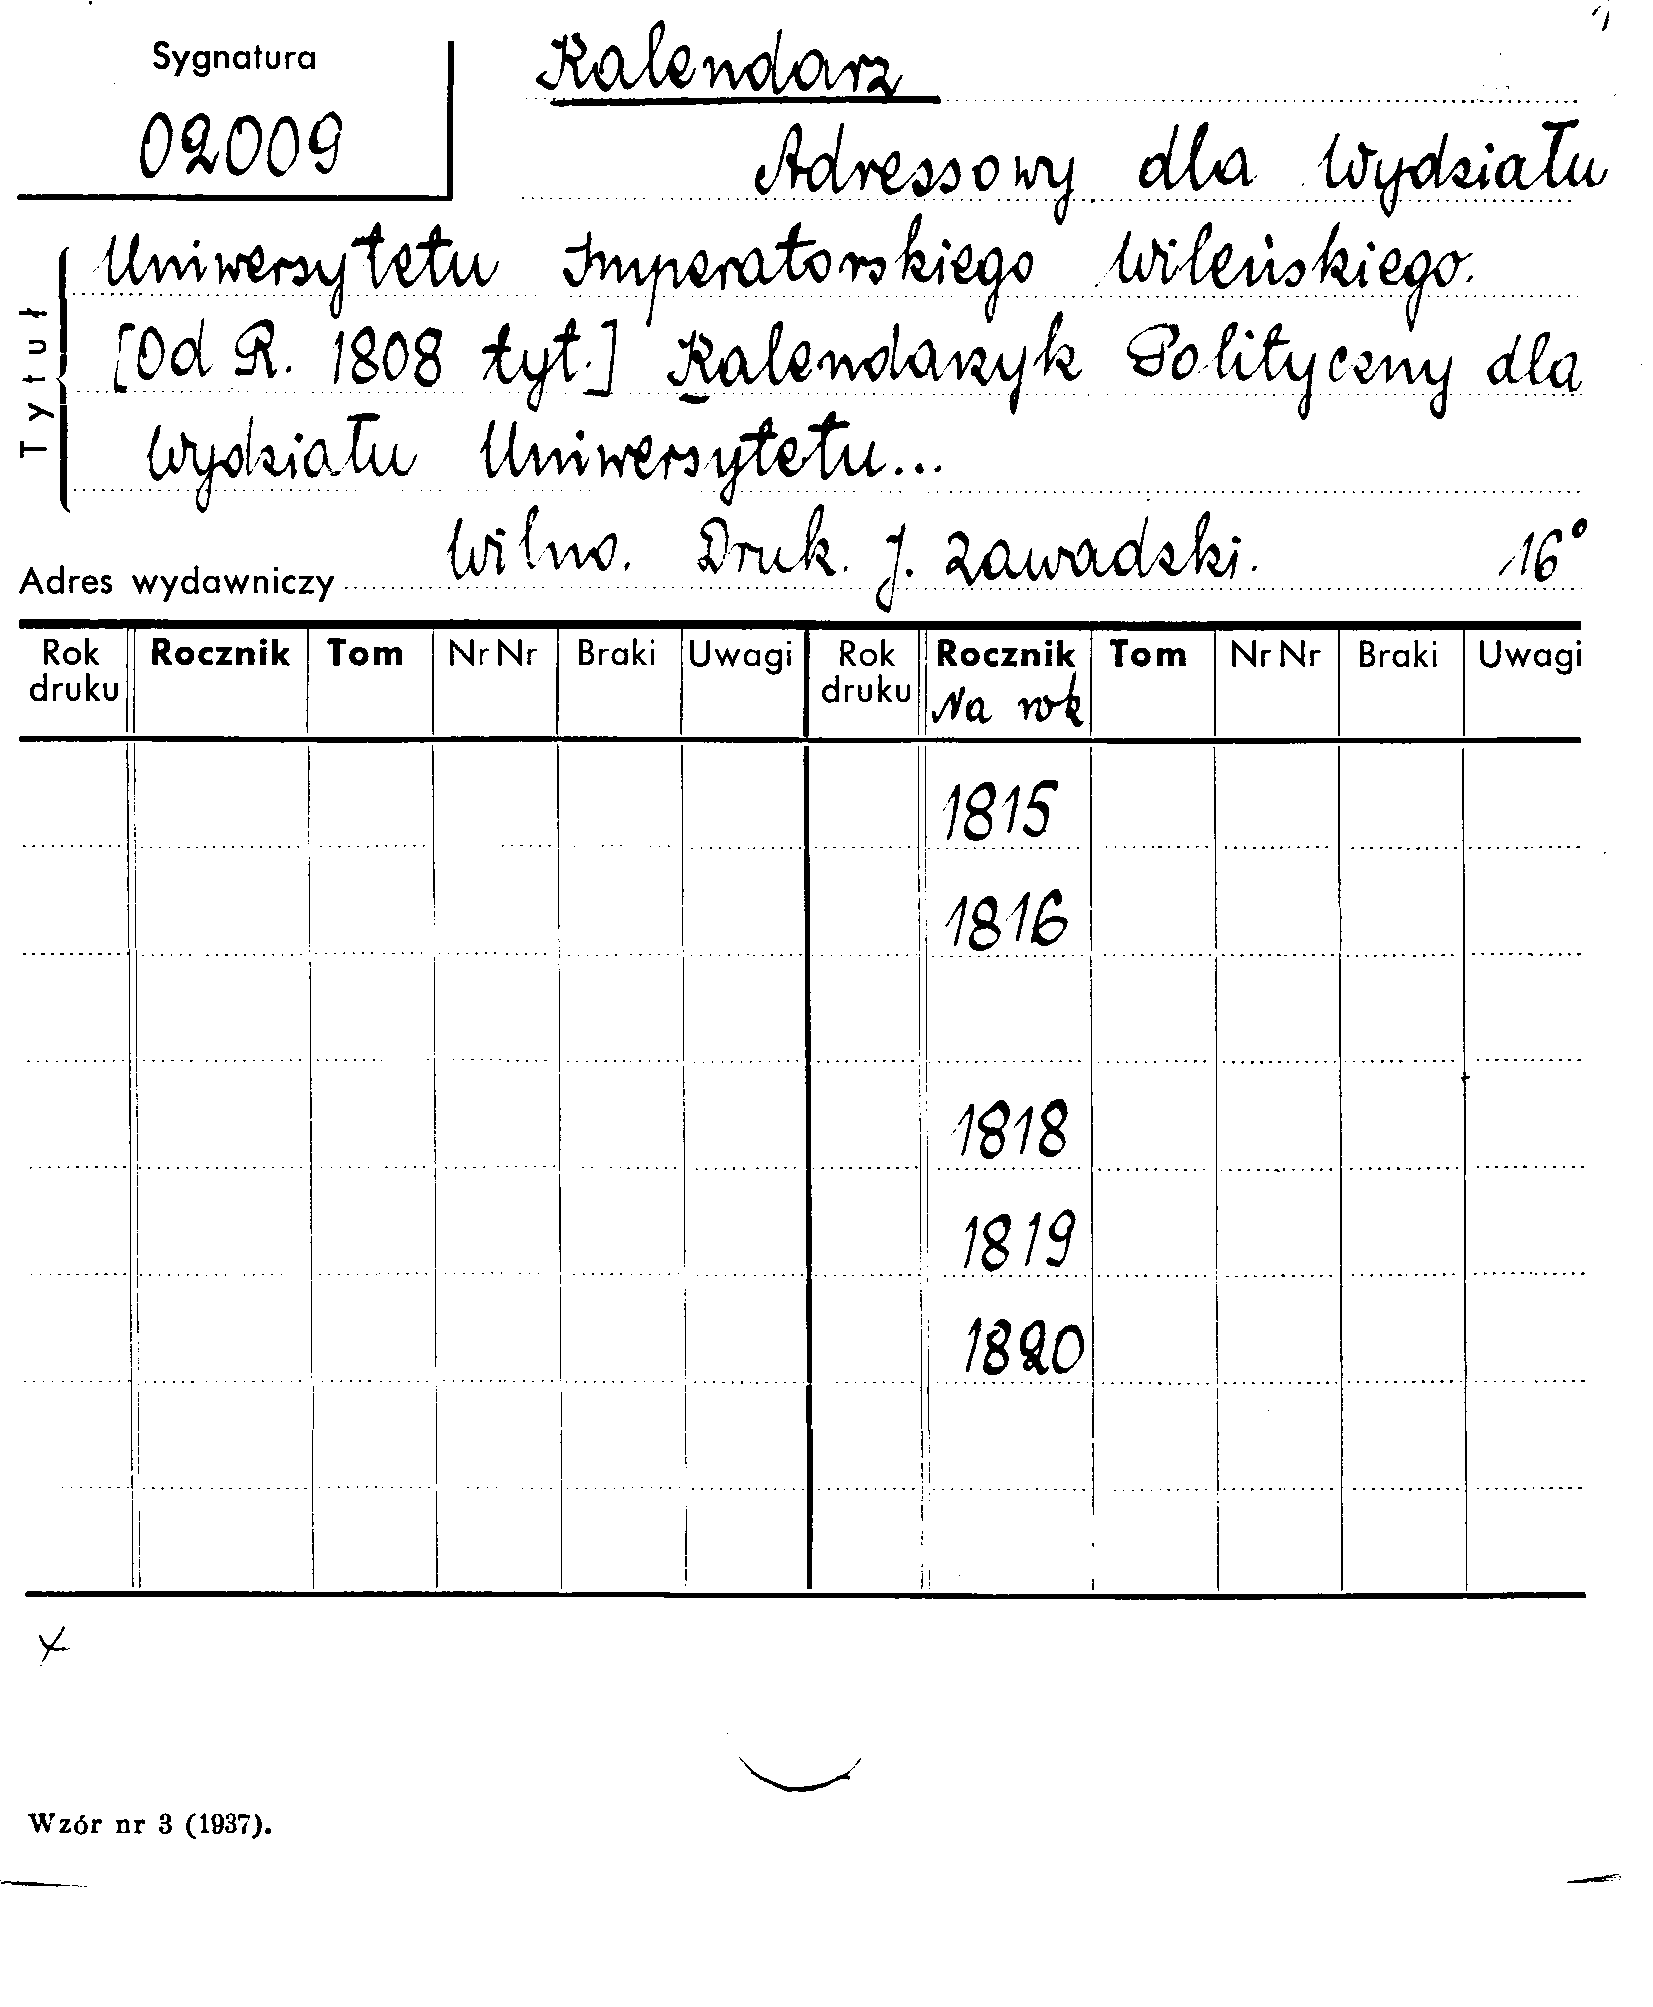 Sygnatura
02009
Kalendarz
Adressowy dla Wydziału
Uniwersytetu Imperatorskiego Wileńskiego.
[Od R. 1808 tyt.] Kalendarzyk Polityczny dla
Wydziału Uniwersytetu...
Tytuł
Wilno. Druk. J. Zawadzki. 16°
Adres wydawniczy
Rok druku Rocznik Tom Nr Nr Braki Uwagi Rok druku Rocznik Tom Nr Nr Braki Uwagi
Na rok
1815
1816
1818
1819
1820
x
Wzór nr 3 (1937).